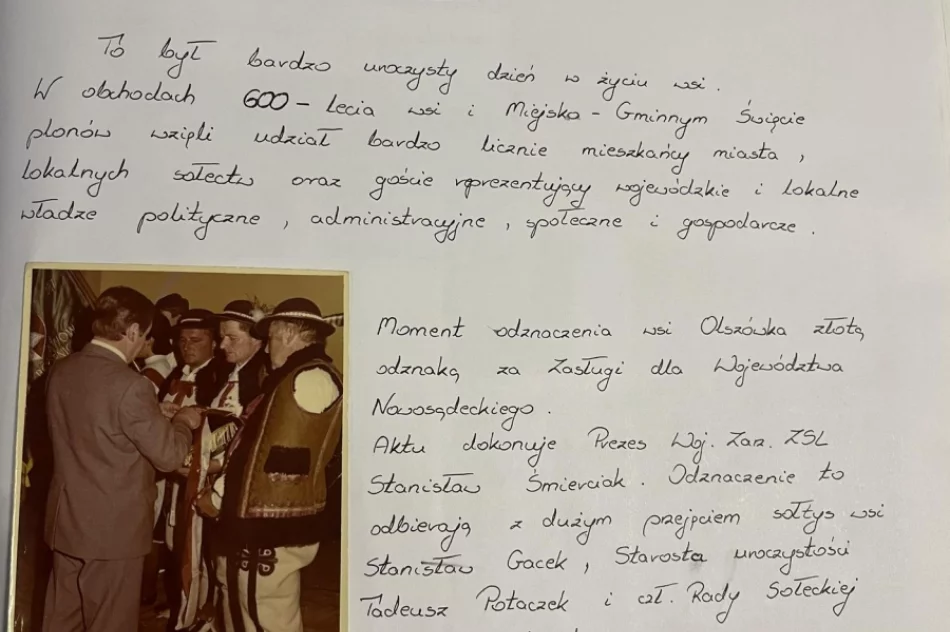 To był bardzo uroczysty dzień w życiu wsi.
W obchodach 600-lecia wsi i Miejsko-Gminnym Święcie
plonów wzięli udział bardzo licznie mieszkańcy miasta,
lokalnych sołectw oraz goście reprezentujący wojewódzkie i lokalne
władze polityczne, administracyjne, społeczne i gospodarcze.
Moment odznaczenia wsi Olszówka złotą
odznaką za Zasługi dla Województwa
Nowosądeckiego.
Aktu dokonuje Prezes Woj. Zarz. ZSL
Stanisław Śmierciak. Odznaczenie to
odbierają z dużym przejęciem sołtys wsi
Stanisław Gacek, Starosta uroczystości
Tadeusz Potaczek i czł. Rady Sołeckiej